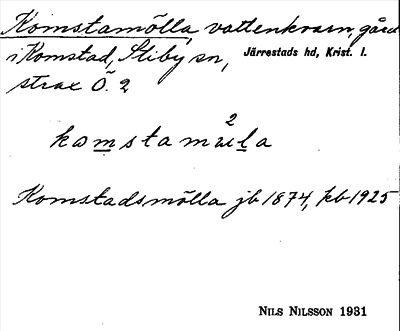 Komstamölla, vattenkvarn, gård
i Komstad, Stiby sn, Järrestads hd, Krist. l.
strax Ö. 2
2
komstamula
Komstadsmölla jb 1874, kb 1925
NILS NILSSON 1931